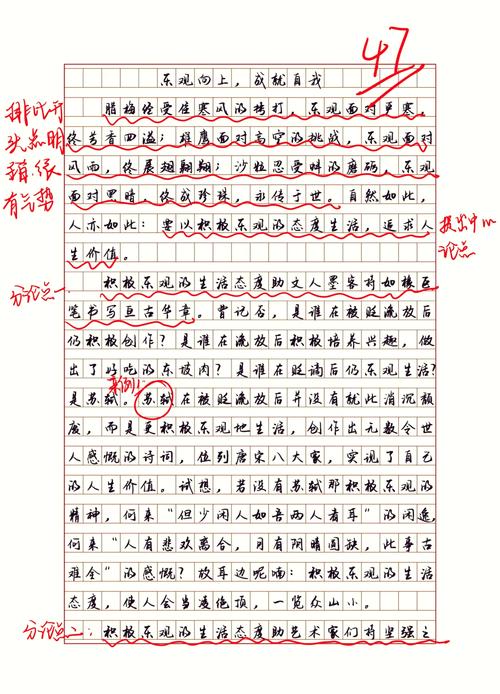 47
乐观向上，成就自我
腊梅经受住寒风的拷打，乐观面对更寒，
终芳香四溢；雄鹰面对高空的挑战，乐观面对
风雨，终展翅翱翔；沙粒忍受蚌的磨砺，乐观
面对黑暗，终成珍珠，永传于世。自然如此，
人亦如此：要以积极乐观的态度生活，追求人
生价值。
积极乐观的生活态度助文人墨客将如椽巨
笔书写亘古华章。曾记否，是谁在被贬流放后
仍积极创作？是谁在流放后积极培养兴趣，做
出了好吃的东坡肉？是谁在贬谪后仍乐观生活？
是苏轼。苏轼在被贬流放后并没有就此消沉颓
废，而是更积极乐观地生活，创作出无数令世
人感慨的诗词，位列唐宋八大家，实现了自己
的人生价值。试想，若没有苏轼那积极乐观的
精神，何来“但少闲人如吾两人者耳”的闲逸，
何来“人有悲欢离合，月有阴晴圆缺，此事古
难全”的感慨？放耳边呢喃：积极乐观的生活
态度，使人会当凌绝顶，一览众山小。
积极乐观的生活态度助艺术家们将坚强之
排比开
头点明
有气势
提出中心
论点
分论点一
事例1
分论点二：